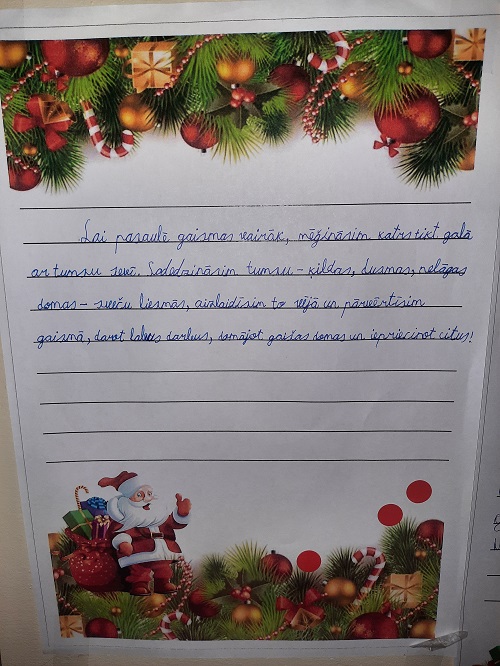 Lai pasaulē gaismas vairāk, mēģināsim katrs tikt galā
ar tumsu sevī. Sadedzināsim tumsu - ķildas, dusmas, nelāgas
domas - sveču liesmās, aizlaidīsim to vējā un pārvērtīsim
gaismā, darot labus darbus, domājot gaišas domas un iepriecinot citus!